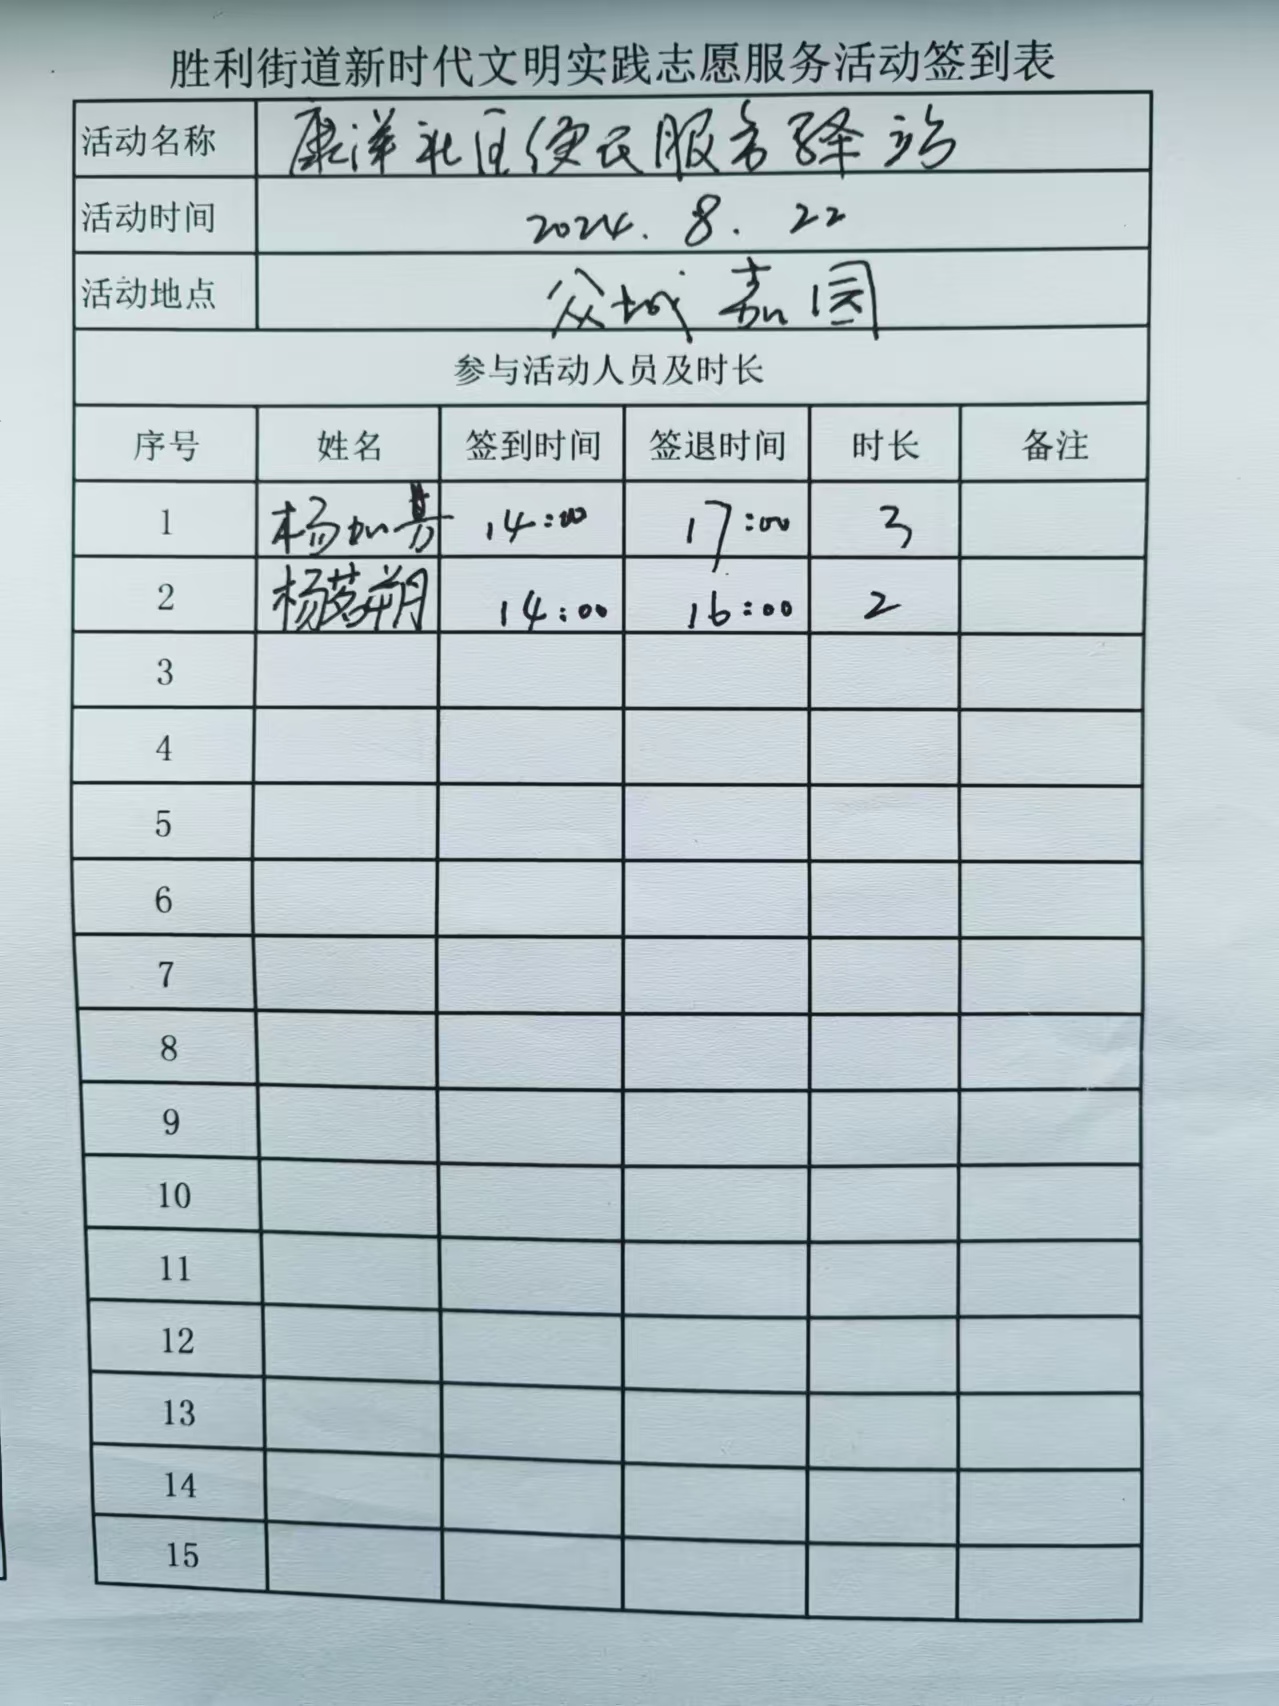 胜利街道新时代文明实践志愿服务活动签到表
活动名称 康洋社区便民服务驿站
活动时间 2024.8.22
活动地点 众城嘉园
参与活动人员及时长
序号 姓名 签到时间 签退时间 时长 备注
1 杨加 14:00 17:00 3
2 杨茗朔 14:00 16:00 2
3
4
5
6
7
8
9
10
11
12
13
14
15